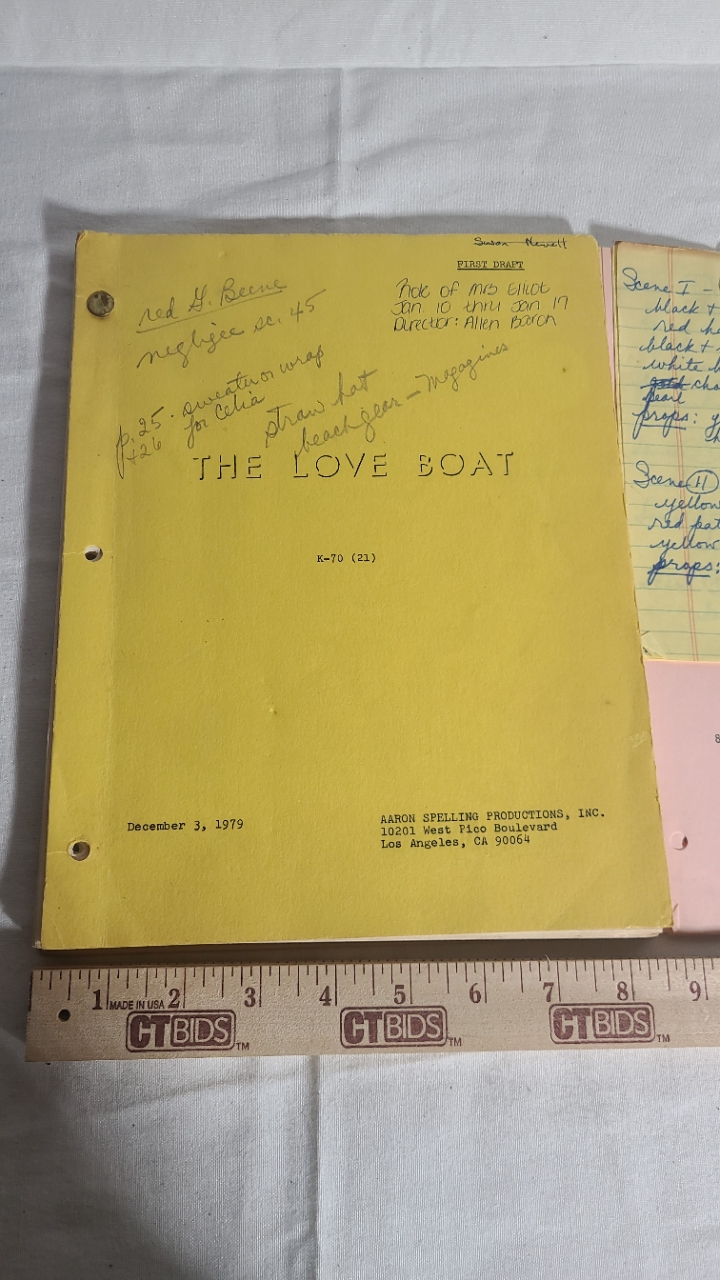 Susan Howell
FIRST DRAFT
Role of Mrs Elliot
Jan. 10 thru Jan 17
Director: Allen Baron
red G. Beene
negligee sc. 45
p. 25. sweater or wrap
+26 for Celia
straw hat
beach gear - Magazines
THE LOVE BOAT
K-70 (21)
December 3, 1979
AARON SPELLING PRODUCTIONS, INC.
10201 West Pico Boulevard
Los Angeles, CA 90064
Scene I -
black +
red
black +
white
pearl
props:
Scene II
yellow
red
yellow
props:
8
1 2 3 4 5 6 7 8 9
MADE IN USA
CTBIDS TM
CTBIDS TM
CTBIDS TM